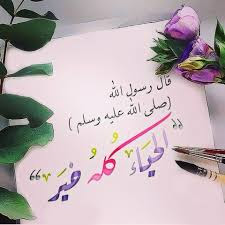 قال رسول الله
(صلى الله عليه وسلم)
"الحَيَاءُ كُلُّهُ خَيْرٌ"